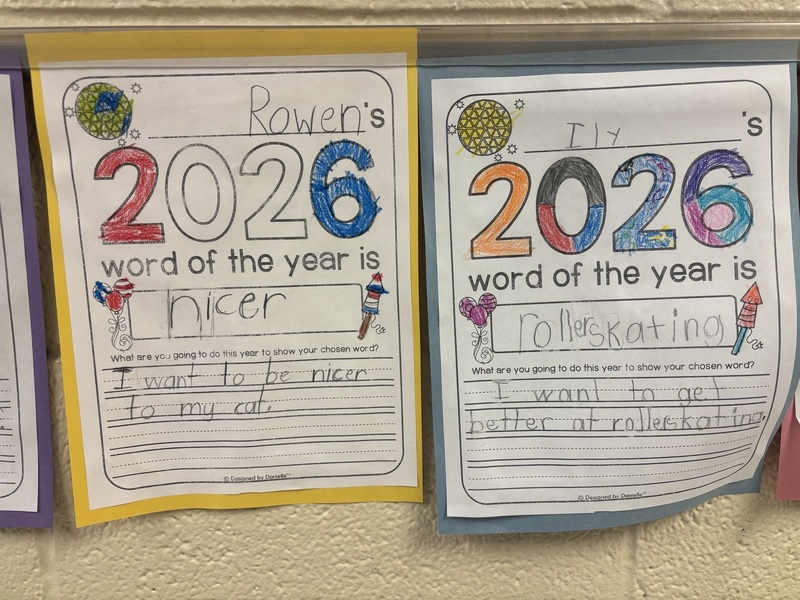 Rowen's
2026
word of the year is
nicer
What are you going to do this year to show your chosen word?
I want to be nicer
to my cat.
© Designed by Danielle™
Ily 's
2026
word of the year is
rollerskating
What are you going to do this year to show your chosen word?
I want to get
better at rollerskating.
© Designed by Danielle™